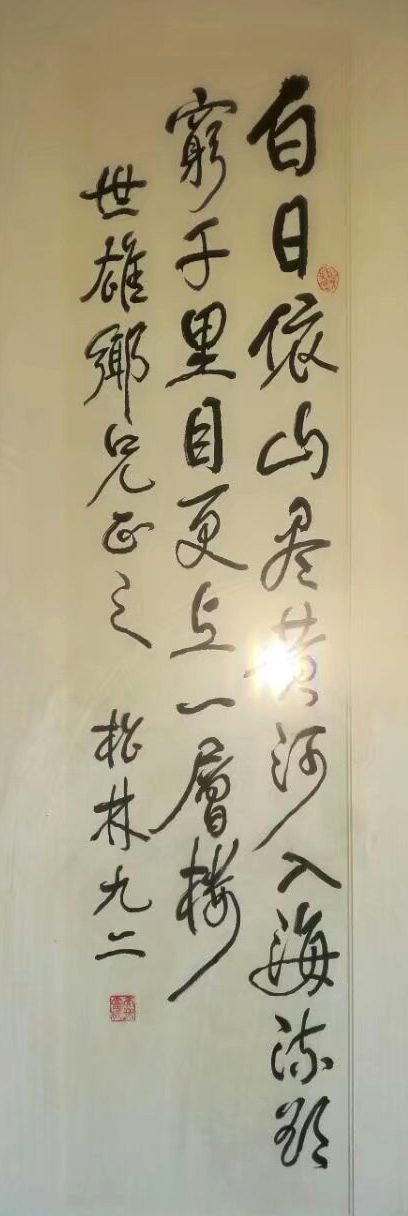 白日依山尽黄河入海流欲
窮千里目更上一層楼
世雄鄉兄正之 松林九二